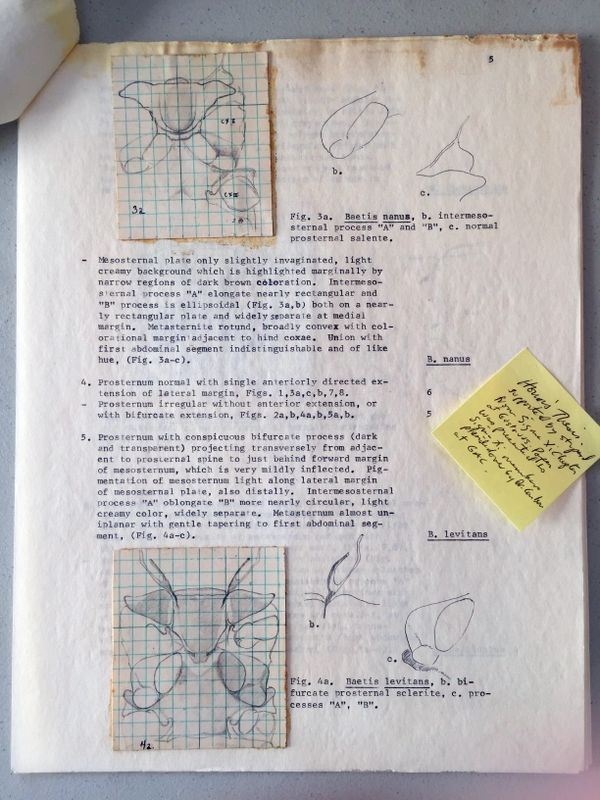 5
CXII
CXIII
3a
b.
c.
Fig. 3a. Baetis nanus, b. intermeso-
sternal process "A" and "B", c. normal
prosternal salente.
- Mesosternal plate only slightly invaginated, light
creamy background which is highlighted marginally by
narrow regions of dark brown coloration. Intermeso-
sternal process "A" elongate nearly rectangular and
"B" process is ellipsoidal (Fig. 3a,b) both on a near-
ly rectangular plate and widely separate at medial
margin. Metasternite rotund, broadly convex with col-
orational margin adjacent to hind coxae. Union with
first abdominal segment indistinguishable and of like
hue, (Fig. 3a-c).
B. nanus
4. Prosternum normal with single anteriorly directed ex-
tension of lateral margin, Figs. 1,3a,c,b,7,8.
6
- Prosternum irregular without anterior extension, or
with bifurcate extension, Figs. 2a,b,4a,b,5a,b.
5
5. Prosternum with conspicuous bifurcate process (dark
and transparent) projecting transversely from adjac-
ent to prosternal spine to just behind forward margin
of mesosternum, which is very mildly inflected. Pig-
mentation of mesosternum light along lateral margin
of mesosternal plate, also distally. Intermesosternal
process "A" oblongate "B" more nearly circular, light
creamy color, widely separate. Metasternum almost un-
iplanar with gentle tapering to first abdominal seg-
ment, (Fig. 4a-c).
B. levitans
Honor's Thesis
supported by
from Sigma X. Chapt
at
was present
Sigma X
by
at GAC
4a.
b.
c.
Fig. 4a. Baetis levitans, b. bi-
furcate prosternal sclerite, c. pro-
cesses "A", "B".